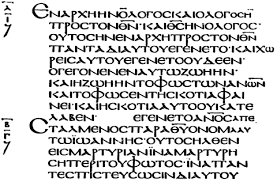 ΕΝΑΡΧΗΗΝΟΛΟΓΟϹΚΑΙΟΛΟΓΟϹΗ̅
ΠΡΟϹΤΟΝΘ̅Ν̅·ΚΑΙΘ̅Ϲ̅ΗΝΟΛΟΓΟϹ·
ΟΥΤΟϹΗΝΕΝΑΡΧΗΠΡΟϹΤΟΝΘ̅Ν̅
ΠΑΝΤΑΔΙΑΥΤΟΥΕΓΕΝΕΤΟ·ΚΑΙΧΩ
ΡΕΙϹΑΥΤΟΥΕΓΕΝΕΤΟΟΥΔΕΕΝ·
ΟΓΕΓΟΝΕΝΕΝΑΥΤΩΖΩΗΗΝ·
ΚΑΙΗΖΩΗΗΝΤΟΦΩϹΤΩΝΑΝ̅Ω̅Ν̅
ΚΑΙΤΟΦΩϹΕΝΤΗϹΚΟΤΙΑΦΑΙ
ΝΕΙΚΑΙΗϹΚΟΤΙΑΑΥΤΟΟΥΚΑΤΕ
ΛΑΒΕΝ· ΕΓΕΝΕΤΟΑΝ̅Ο̅Ϲ̅ΑΠΕ
ϹΤΑΛΜΕΝΟϹΠΑΡΑΘ̅Υ̅ΟΝΟΜΑΑΥ
ΤΩΙΩΑΝΝΗϹ·ΟΥΤΟϹΗΛΘΕΝ
ΕΙϹΜΑΡΤΥΡΙΑΝΙΝΑΜΑΡΤΥΡΗ
ϹΗΠΕΡΙΤΟΥΦΩΤΟϹ·ΙΝΑΠΑΝ
ΤΕϹΠΙϹΤΕΥϹΩϹΙΝΔΙΑΥΤΟΥ